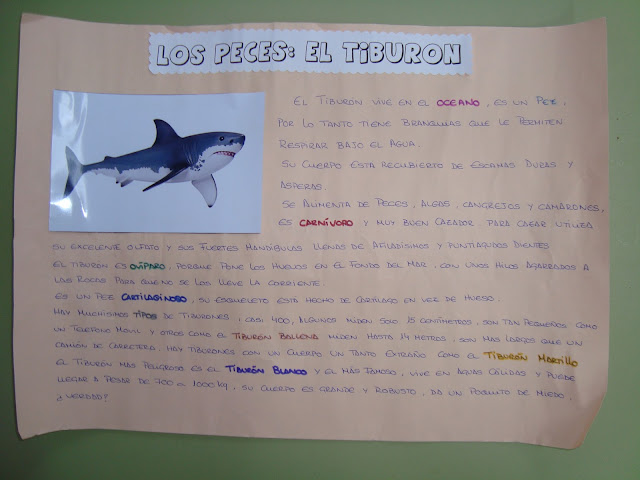 LOS PECES: EL TIBURON
EL TIBURÓN VIVE EN EL OCEANO, ES UN PEZ,
POR LO TANTO TIENE BRANQUIAS QUE LE PERMITEN
RESPIRAR BAJO EL AGUA.
SU CUERPO ESTA RECUBIERTO DE ESCAMAS DURAS Y
ASPERAS.
SE ALIMENTA DE PECES, ALGAS, CANGREJOS Y CAMARONES,
ES CARNÍVORO Y MUY BUEN CAZADOR. PARA CAZAR UTILIZA
SU EXCELENTE OLFATO Y SUS FUERTES MANDIBULAS LLENAS DE AFILADÍSIMOS Y PUNTIAGUDOS DIENTES
EL TIBURÓN ES OVIPARO, PORQUE PONE LOS HUEVOS EN EL FONDO DEL MAR, CON UNOS HILOS AGARRADOS A
LAS ROCAS PARA QUE NO SE LOS LLEVE LA CORRIENTE.
ES UN PEZ CARTILAGINOSO, SU ESQUELETO ESTÁ HECHO DE CARTÍLAGO EN VEZ DE HUESO.
HAY MUCHISIMOS TIPOS DE TIBURONES, CASI 400, ALGUNOS MIDEN SOLO 15 CENTÍMETROS, SON TAN PEQUEÑOS COMO
UN TELEFONO MOVIL Y OTROS COMO EL TIBURÓN BALLENA MIDEN HASTA 14 METROS, SON MAS LARGOS QUE UN
CAMIÓN DE CARRETERA. HAY TIBURONES CON UN CUERPO UN TANTO EXTRAÑO COMO EL TIBURÓN MARTILLO
EL TIBURÓN MAS PELIGROSO ES EL TIBURÓN BLANCO Y EL MÁS FAMOSO, VIVE EN AGUAS CÁLIDAS Y PUEDE
LLEGAR A PESAR DE 700 A 1000 Kg, SU CUERPO ES GRANDE Y ROBUSTO, DA UN POQUITO DE MIEDO,
¿VERDAD?